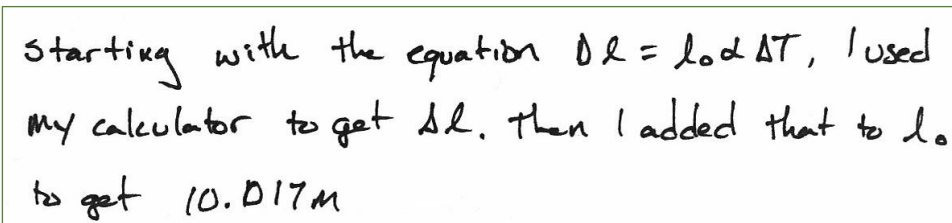 starting with the equation Δl = l₀α ΔT, I used
my calculator to get Δl. Then I added that to l₀
to get 10.017m